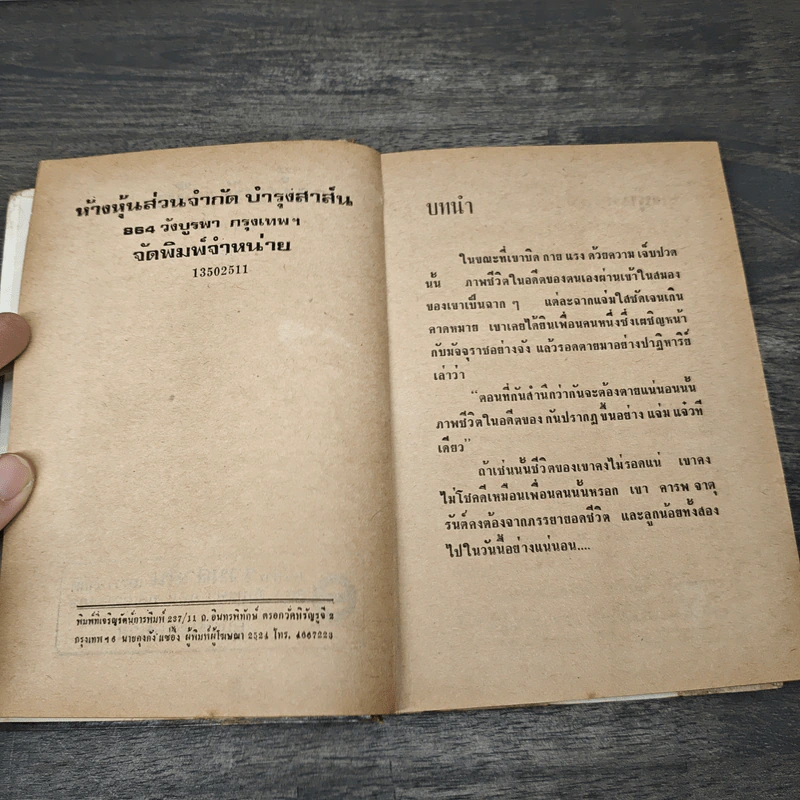 ห้างหุ้นส่วนจำกัด บำรุงสาส์น
864 วังบูรพา กรุงเทพฯ
จัดพิมพ์จำหน่าย
13502511
พิมพ์ที่เจริญรัตน์การพิมพ์ 237/11 ถ.อินทรพิทักษ์ ตรอกวัดหิรัญรูจี 2
กรุงเทพฯ 6 นายคุงกัง แซ่อึ้ง ผู้พิมพ์ผู้โฆษณา 2524 โทร. 4667223
บทนำ
ในขณะที่เขาบิด กาย แรง ด้วยความ เจ็บปวด
นั้น ภาพชีวิตในอดีตของตนเองผ่านเข้าในสมอง
ของเขาเป็นฉาก ๆ แต่ละฉากแจ่มใสชัดเจนเกิน
คาดหมาย เขาเคยได้ยินเพื่อนคนหนึ่งซึ่งเผชิญหน้า
กับมัจจุราชอย่างจัง แล้วรอดตายมาอย่างปาฏิหาริย์
เล่าว่า
"ตอนที่กันสำนึกว่ากันจะต้องตายแน่นอนนั้น
ภาพชีวิตในอดีตของ กันปรากฏ ขึ้นอย่าง แจ่ม แจ๋วที
เดียว"
ถ้าเช่นนั้นชีวิตของเขาคงไม่รอดแน่ เขาคง
ไม่โชคดีเหมือนเพื่อนคนนั้นหรอก เขา คารพ จาตุ
รันต์คงต้องจากภรรยายอดชีวิต และลูกน้อยทั้งสอง
ไปในวันนี้อย่างแน่นอน....